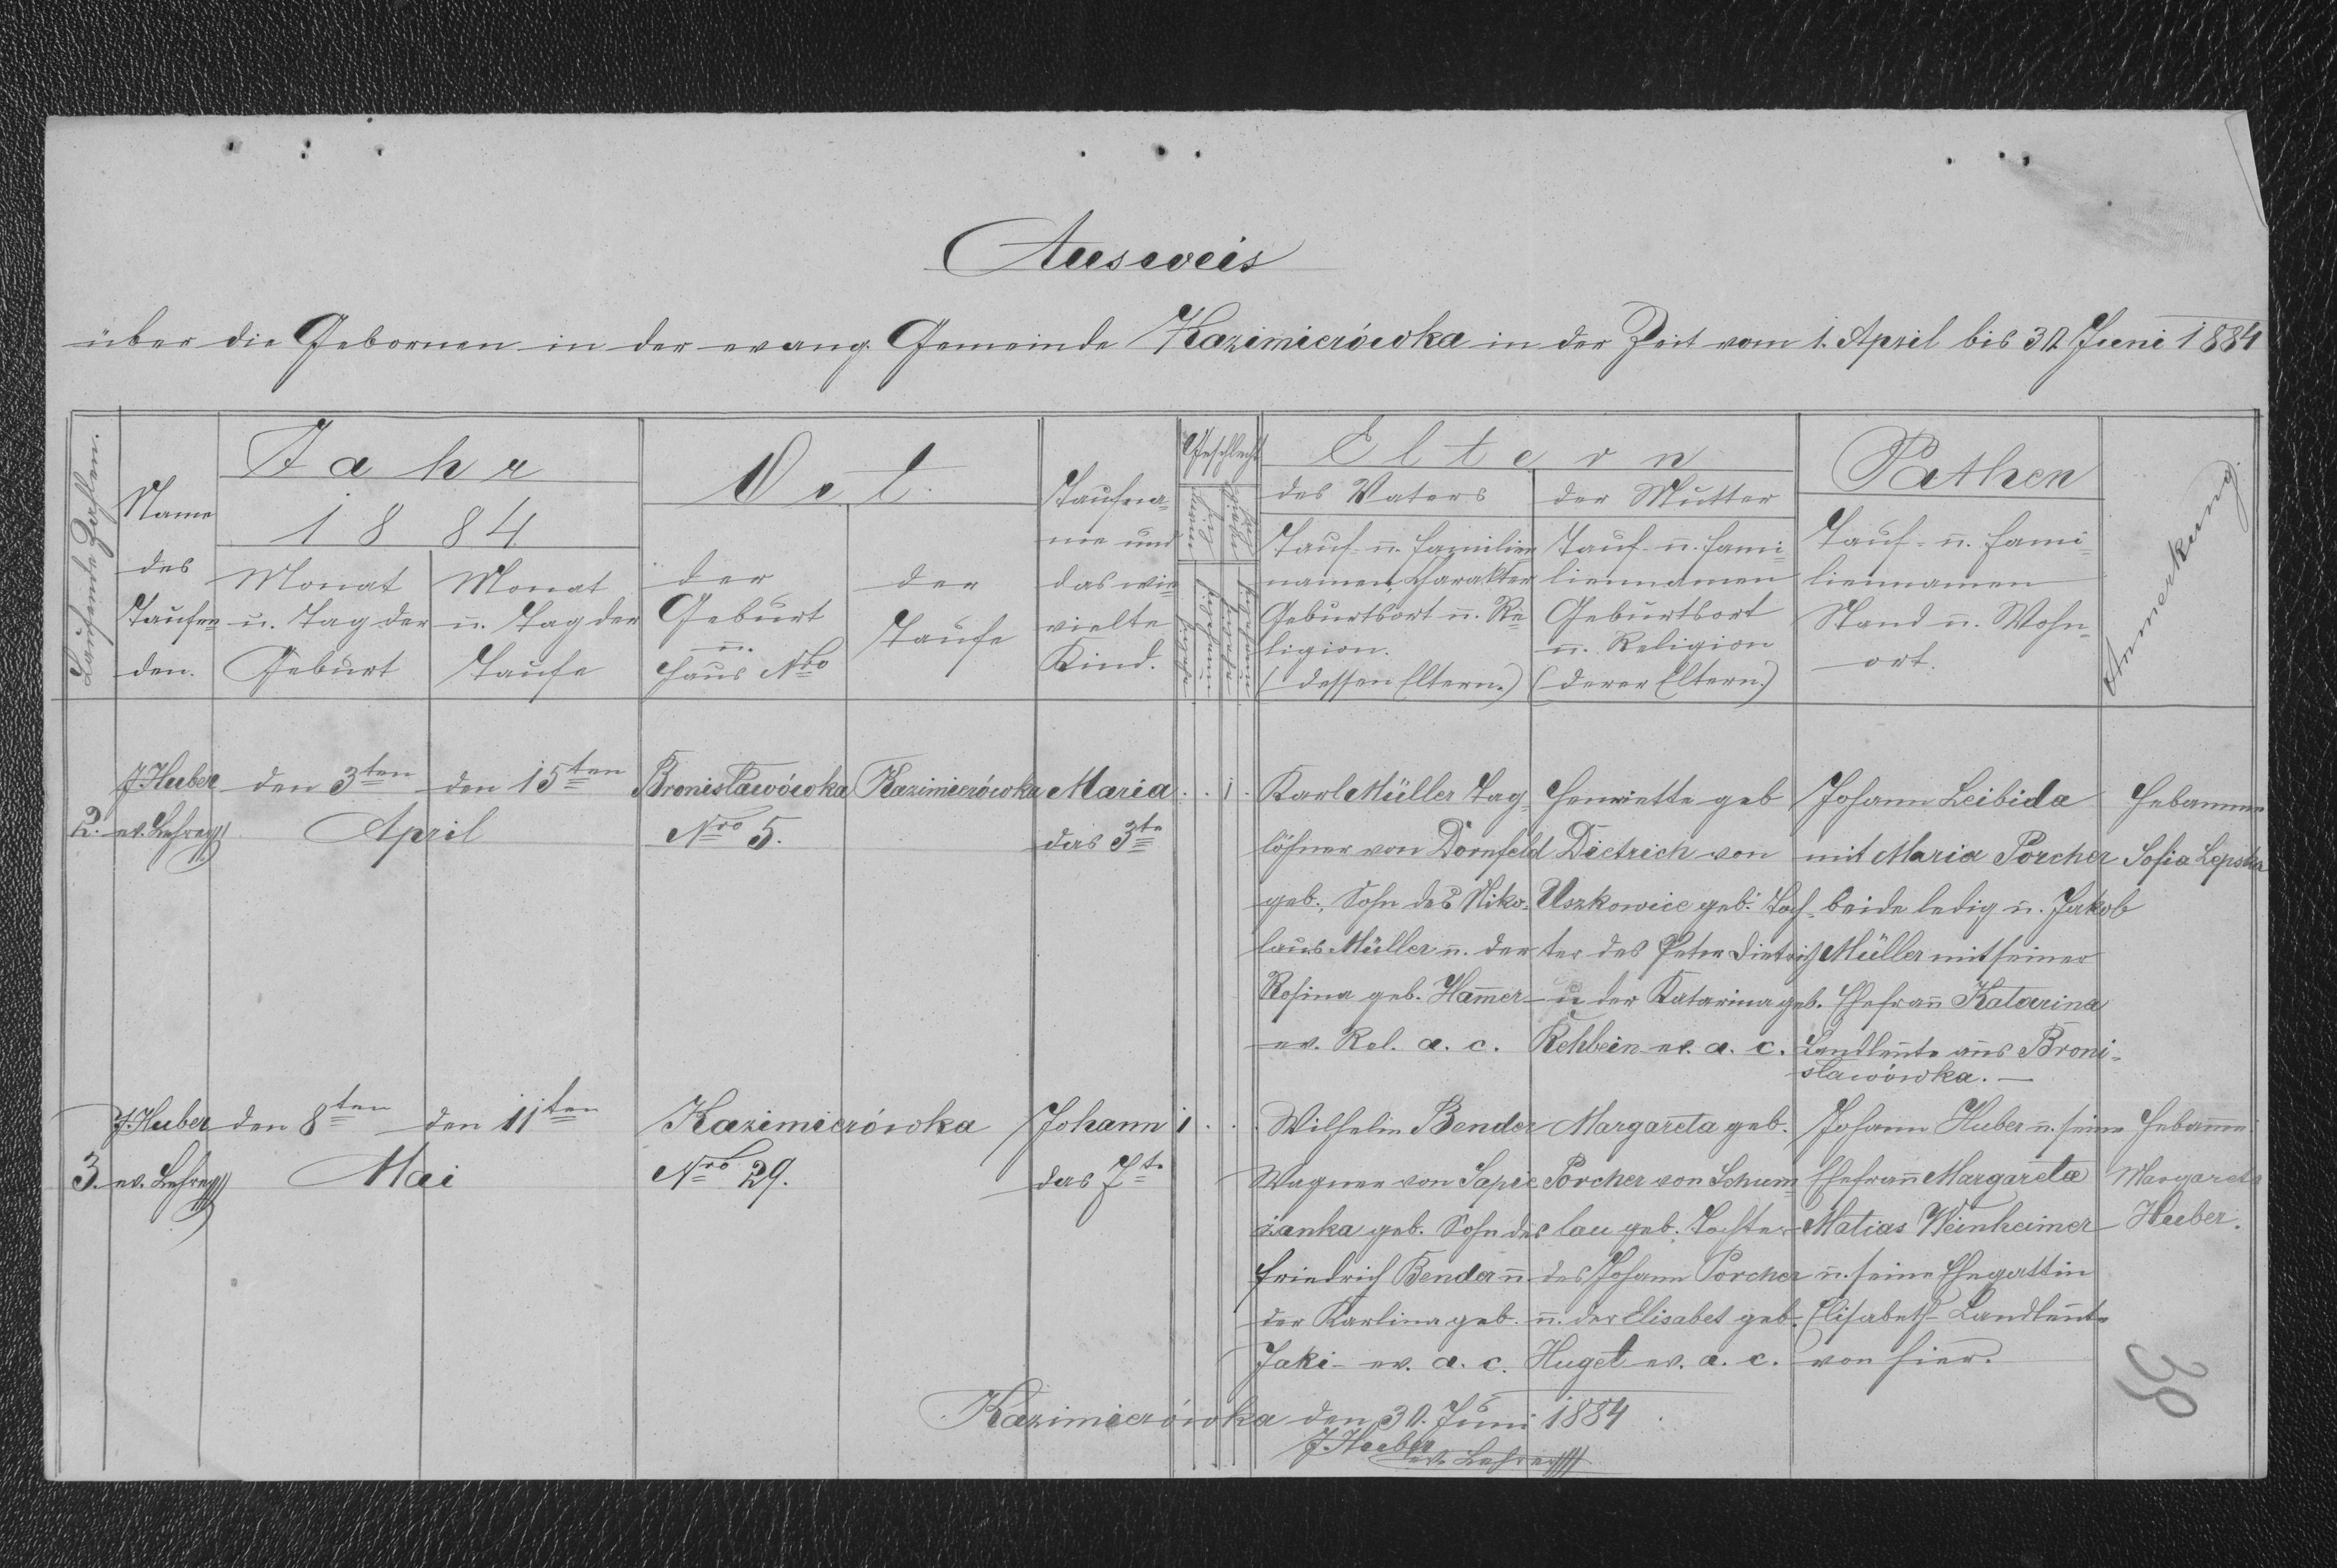 Ausweis
über die Gebornen in der evang. Gemeinde Kazimierówka in der Zeit vom 1. April bis 30 Juni 1884
Laufende Zahlen.
Name
des
Taufen-
den.
Jahr
1884
Monat
u. Tag der
Geburt
Monat
u. Tag der
Taufe
Ort.
der
Geburt
u.
Haus Nro
der
Taufe
Taufna-
me und
das wie-
vielte
Kind.
Geschlecht
Eltern
des Vaters
Tauf- u. Familien
namen, Charakter
Geburtsort u. Re-
ligion.
(dessen Eltern.)
der Mutter
Tauf- u. Fami-
liennamen
Geburtsort
u. Religion
(derer Eltern.)
Pathen
Tauf- u. Fami-
liennamen
Stand u. Wohn-
ort.
Anmerkung.
2.
J. Huber
ev. Lehrer
den 3ten
den 15ten
April
Bronisławówka
Nro 5.
Kazimierówka
Maria
das 3te
. . 1 .
Karl Müller Tag-
löhner von Dornfeld
geb., Sohn des Niko-
laus Müller u. der
Rosina geb. Hamer
ev. Rel. a. c.
Henriette geb
Dietrich von
Uszkowice geb. Toch-
ter des Peter Dietrich
u der Katarina geb.
Rehbein ev. a. c.
Johann Leibida
mit Maria Porcher
beide ledig u. Jakob
Müller mit seiner
Ehefrau Katarina
Landleute aus Broni-
sławówka. —
Hebamme
Sofia Lepska
3.
J. Huber
ev. Lehrer
den 8ten
den 11ten
Mai
Kazimierówka
Nro 29.
Johann
das 7te
1 . . .
Wilhelm Bender
Wagner von Sapie
zanka geb. Sohn des
Friedrich Bender u
der Karlina geb.
Jaki ev. a. c.
Margareta geb.
Porcher von Schum-
lau geb. Tochter
des Johann Porcher
u. der Elisabet geb.
Huget ev. a. c.
Johann Huber u. seine
Ehefrau Margareta
Matias Weinheimer
u. seine Ehegattin
Elisabeth Landleute
von hier.
Hebamme
Margareta
Huber.
38
Kazimierówka den 30. Juni 1884
J. Huber
ev. Lehrer